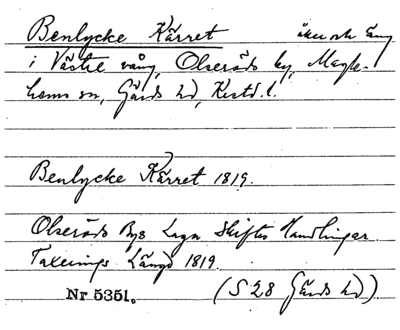 Benlycke Kärret åker och äng
i Västre vång, Olseröds by, Magle-
hems sn, Gärds hd, Krstd. l.
Benlycke Kärret 1819.
Olseröds Bys Laga Skiftes Handlingar
Taxerings Längd 1819.
Nr 5351. (S 28 Gärds hd)